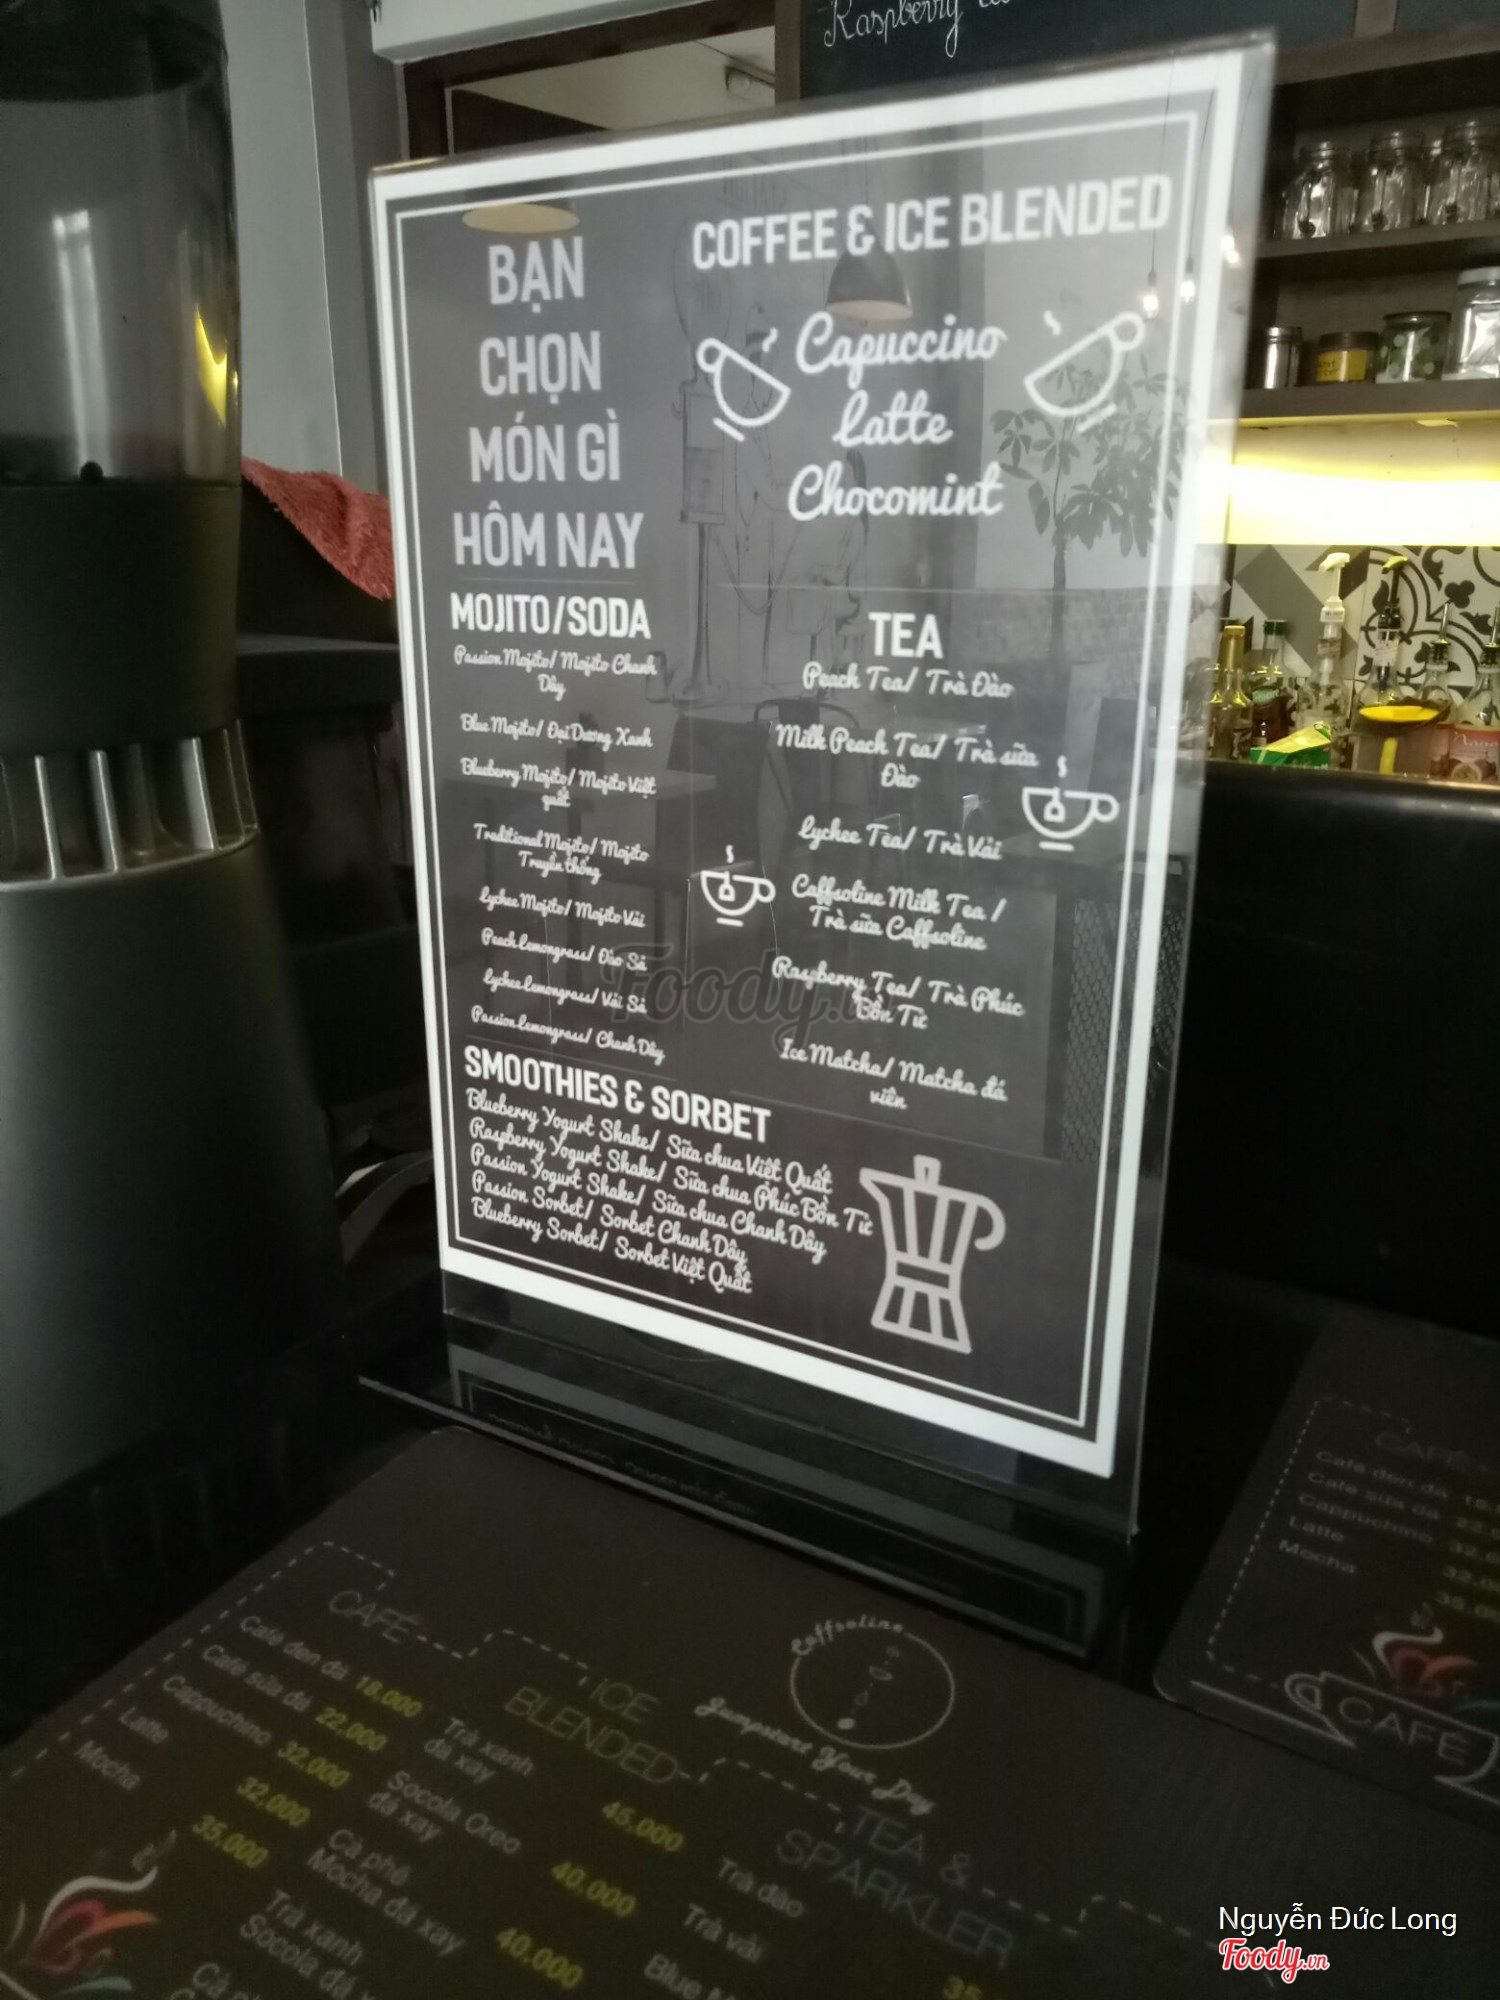 Raspberry
BẠN
CHỌN
MÓN GÌ
HÔM NAY
MOJITO/SODA
Passion Mojito/ Mojito Chanh
Dây
Blue Mojito/ Đại Dương Xanh
Blueberry Mojito/ Mojito Việt
quất
Traditional Mojito/ Mojito
Truyền thống
Lychee Mojito/ Mojito Vải
Peach Lemongrass/ Đào Sả
Lychee Lemongrass/ Vải Sả
Passion Lemongrass/ Chanh Dây
COFFEE & ICE BLENDED
Capuccino
Latte
Chocomint
TEA
Peach Tea/ Trà Đào
Milk Peach Tea/ Trà sữa
Đào
Lychee Tea/ Trà Vải
Caffsoline Milk Tea /
Trà sữa Caffsoline
Raspberry Tea/ Trà Phúc
Bồn Tử
Ice Matcha/ Matcha đá
viên
SMOOTHIES & SORBET
Blueberry Yogurt Shake/ Sữa chua Việt Quất
Raspberry Yogurt Shake/ Sữa chua Phúc Bồn Tử
Passion Yogurt Shake/ Sữa chua Chanh Dây
Passion Sorbet/ Sorbet Chanh Dây
Blueberry Sorbet/ Sorbet Việt Quất
Foody.vn
CAFÉ
Café đen đá 18.000
Café sữa đá 22.000
Cappuchino 32.000
Latte 32.000
Mocha 35.000
ICE
BLENDED
Trà xanh
đá xay 45.000
Socola Oreo
đá xay 40.000
Cà phê
Mocha đá xay 40.000
Trà xanh
Socola đá
Caffsoline
Jumpstart Your Day
TEA &
SPARKLER
Trà đào 35
Trà vải
Blue
CAFÉ
Café đen đá
Café sữa đá
Cappuchino
Latte
Mocha
CAFÉ
Nguyễn Đức Long
Foody.vn